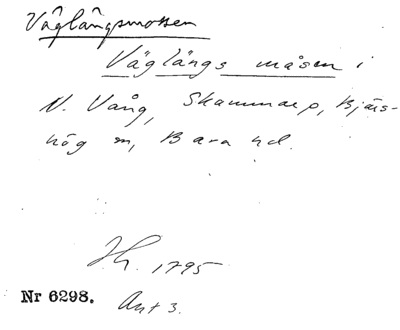 Väglångsmossen
Väglångs måsen i
N. Vång, Skammarp, Bjäs-
hög m, Bara hd.
Jh. 1795
Nr 6298. Ant 3.